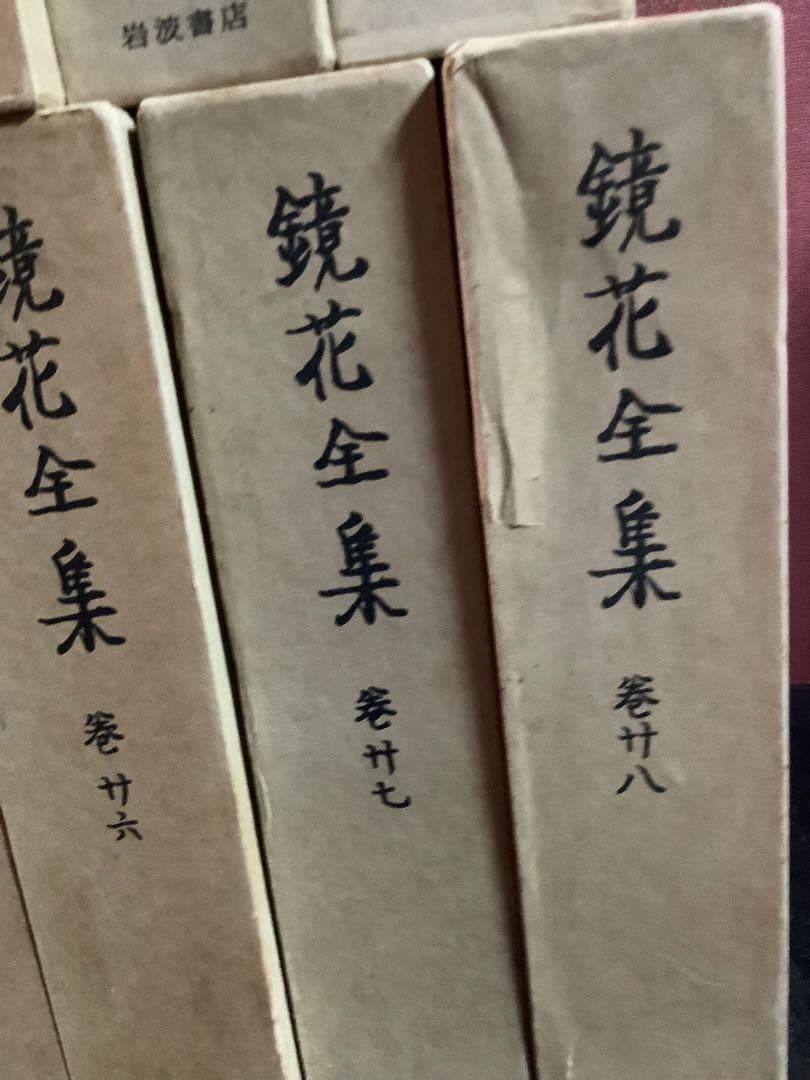 岩波書店
鏡花全集 卷廿六
鏡花全集 卷廿七
鏡花全集 卷廿八